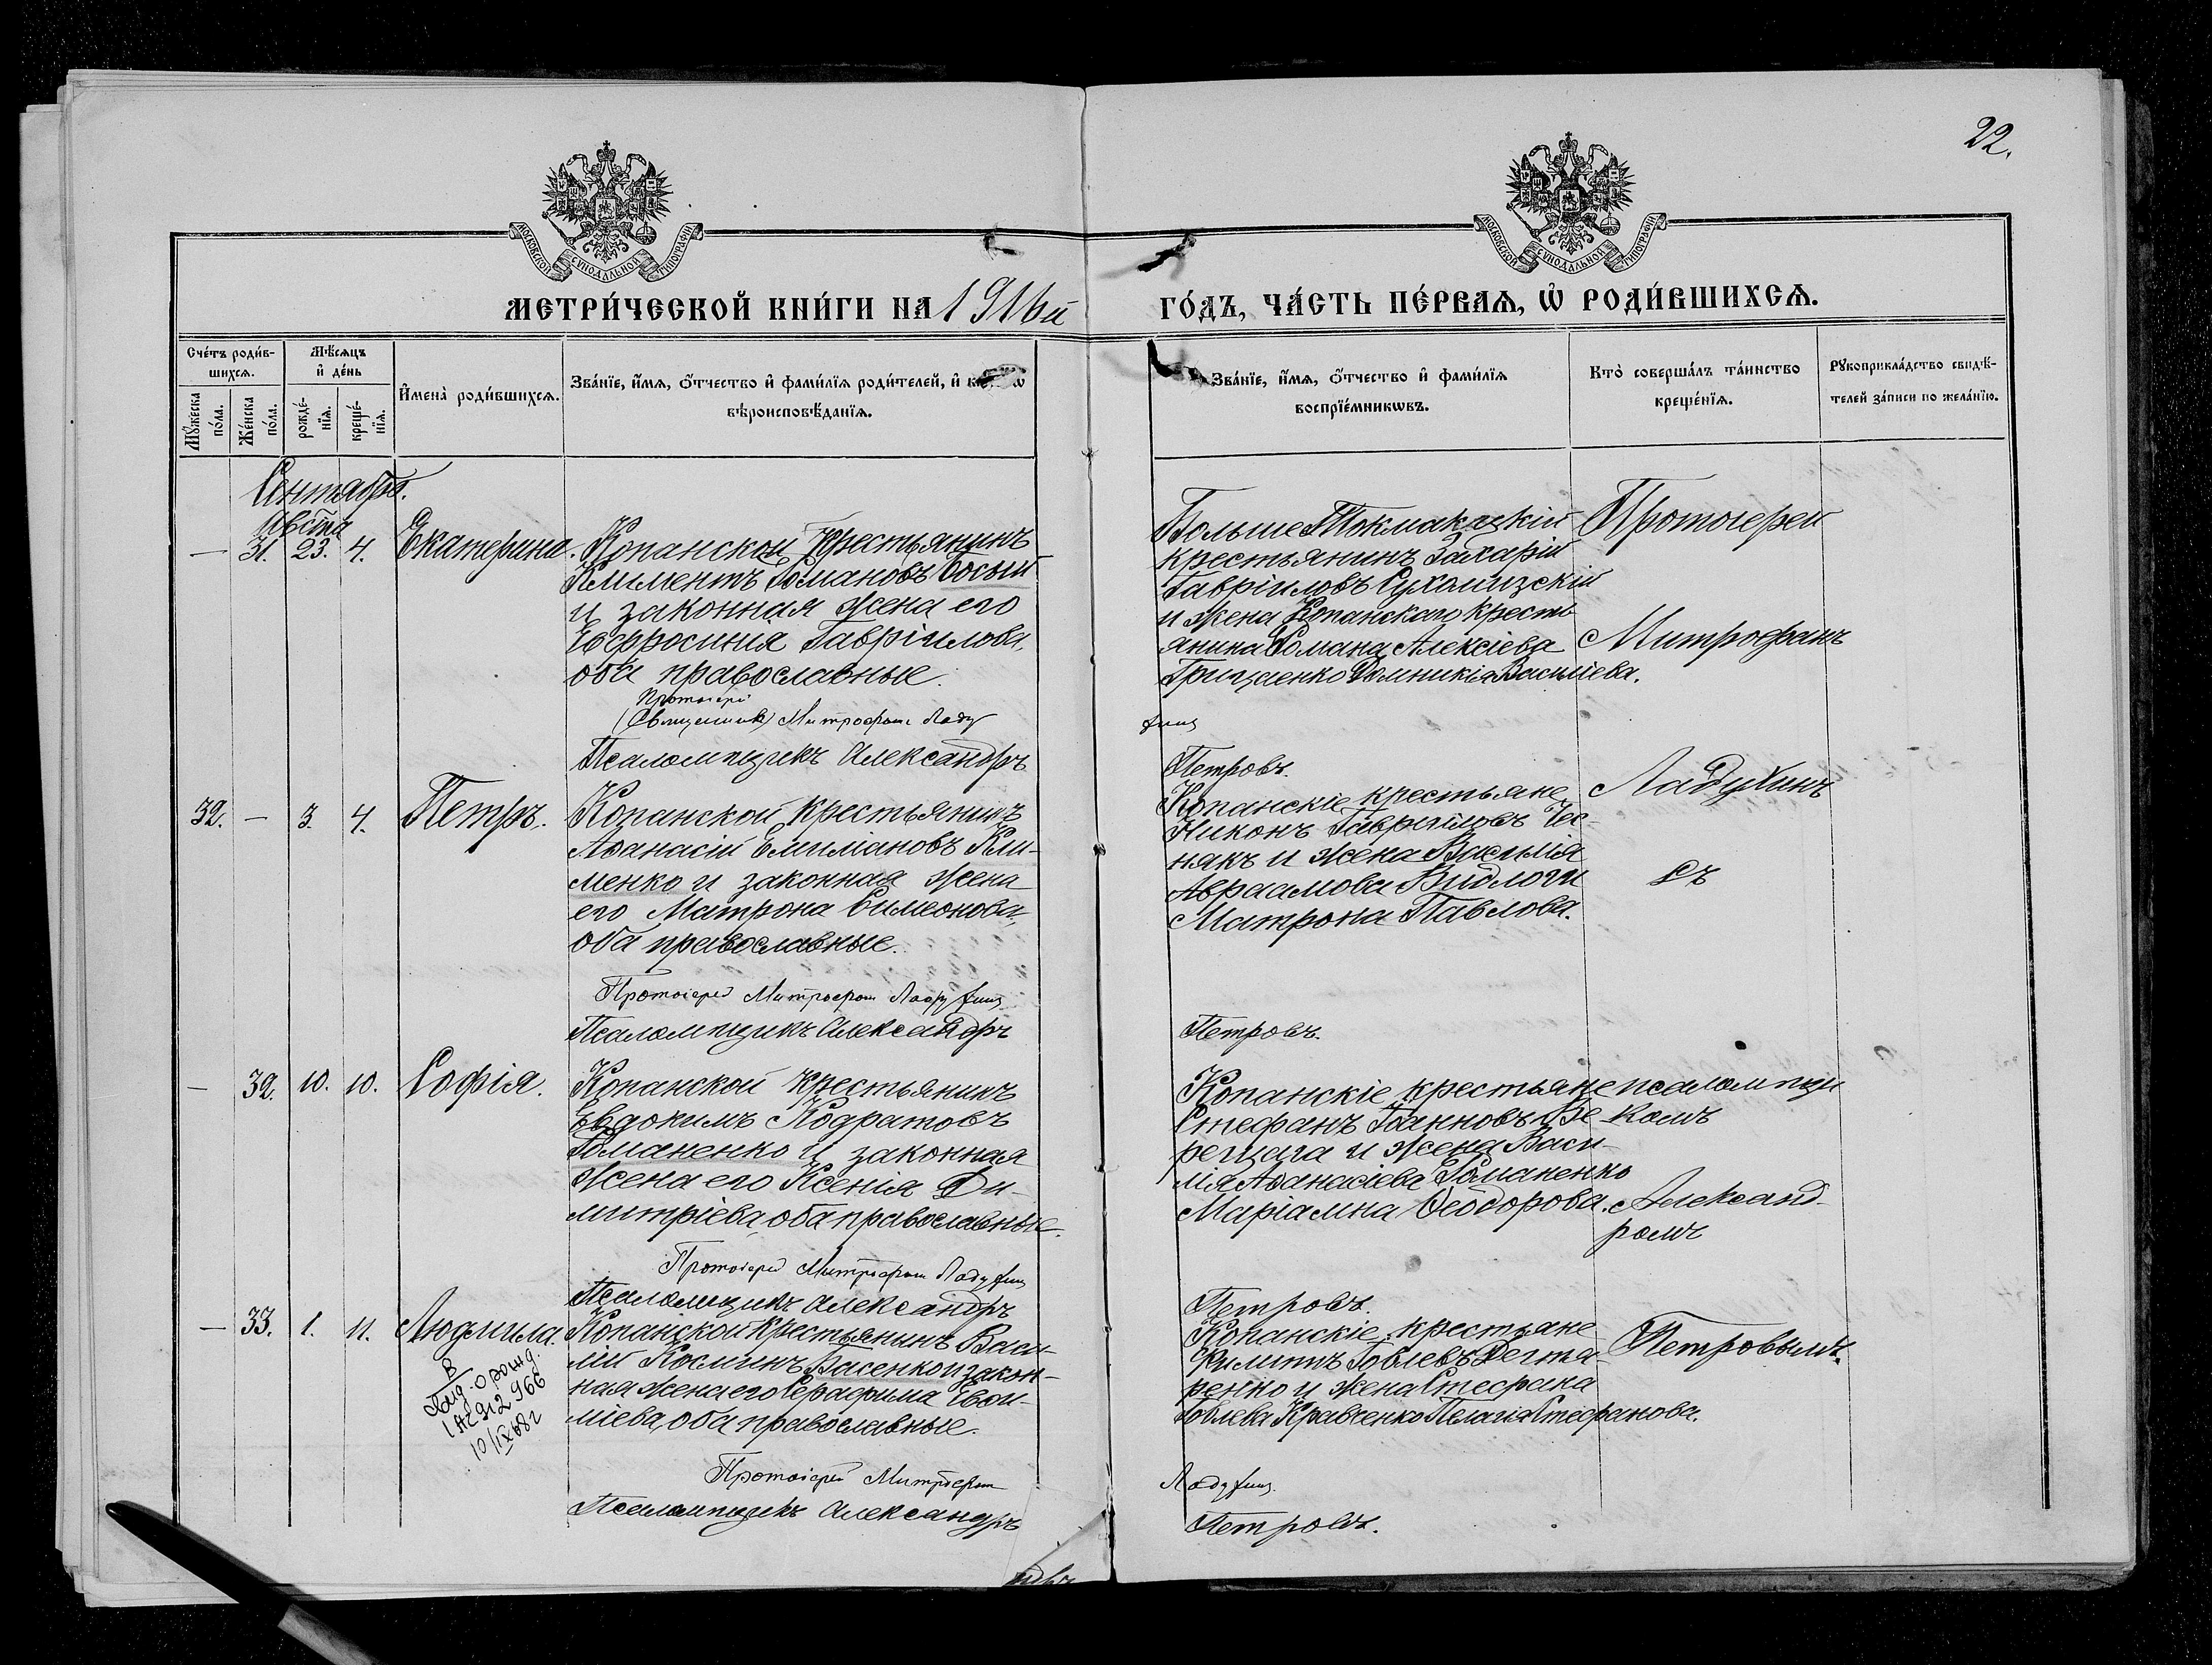 22.
МОСКОВСКОЙ СѴНОДАЛЬНОЙ ТИПОГРАФІИ
МОСКОВСКОЙ СѴНОДАЛЬНОЙ ТИПОГРАФІИ
МЕТРИ́ЧЕСКОЙ КНИ́ГИ НА 1916й ГО́ДЪ, ЧА́СТЬ ПЕ́РВАѦ, Ѡ҆ РОДИ́ВШИХСѦ.
Сче́тъ роди́в-
шихсѧ.
Мꙋ́жеска по́ла.
Же́нска по́ла.
Мѣ́сѧцъ и҆ де́нь
рожде́-
нїѧ.
креще́-
нїѧ.
И҆мена̀ роди́вшихсѧ.
Зва́нїе, и҆́мѧ, ѻ҆́тчество и҆ фами́лїѧ роди́телей, и҆
вѣроисповѣ́данїѧ.
Зва́нїе, и҆́мѧ, ѻ҆́тчество и҆ фами́лїѧ
воспрїе́мникѡвъ.
Кто̀ соверша́лъ та́инство
креще́нїѧ.
Рꙋкоприкла́дство свидѣ́-
телей за́писи по жела́нїю.
Сентябрь.
Августа
— 31. 23. 4. Екатерина.
Копанской крестьянинъ
Климентъ Романовъ Босый
и законная жена его
Евфросинія Гавріилова,
оба православные.
Протоіерей
(Священникъ) Митрофанъ Ладухинъ
Псаломщикъ Александръ Петровъ.
Больше Токмакцкій
крестьянинъ Захарій
Гавріиловъ Сухолизскій
и жена Копанскаго кресть
янина Романа Алексіева
Грищенко Домникія Василіева.
Протоіерей
Митрофанъ
32. — 3. 4. Петръ.
Копанской крестьянинъ
Аѳанасій Емиліановъ Кли-
менко и законная жена
его Матрона Симеонова,
оба православные.
Протоіерей Митрофанъ Ладухинъ
Псаломщикъ Александръ Петровъ.
Копанскіе крестьяне
Никонъ Гавріиловъ Чес-
някъ и жена Василія
Авраамова Видлоги
Матрона Павлова.
Ладухинъ
съ
— 32. 10. 10. Софія.
Копанской крестьянинъ
Евдокимъ Кодратовъ
Романенко и законная
жена его Ксенія Ди-
митріева, оба православные.
Протоіерей Митрофанъ Ладухинъ
Псаломщикъ Александръ Петровъ.
Копанскіе крестьяне
Стефанъ Іоанновъ Ве-
рещага и жена Васи-
лія Аѳанасіева Романенко
Маріамна Ѳеодорова.
псаломщи
комъ
Александ-
ромъ
— 33. 1. 11. Людмила.
В
Выд. о рожд.
1 АС912966
10/IX 68г
Копанской крестьянинъ Васи-
лій Косминъ Васенко и закон-
ная жена его Серафима Евѳи-
міева, оба православные.
Протоіерей Митрофанъ Ладухинъ.
Псаломщикъ Александръ Петровъ.
Копанскіе крестьяне
Филиппъ Іовлевъ Дегтя-
ренко и жена Стефана
Іовлева Кравченко Пелагія Стефанова.
Петровымъ.